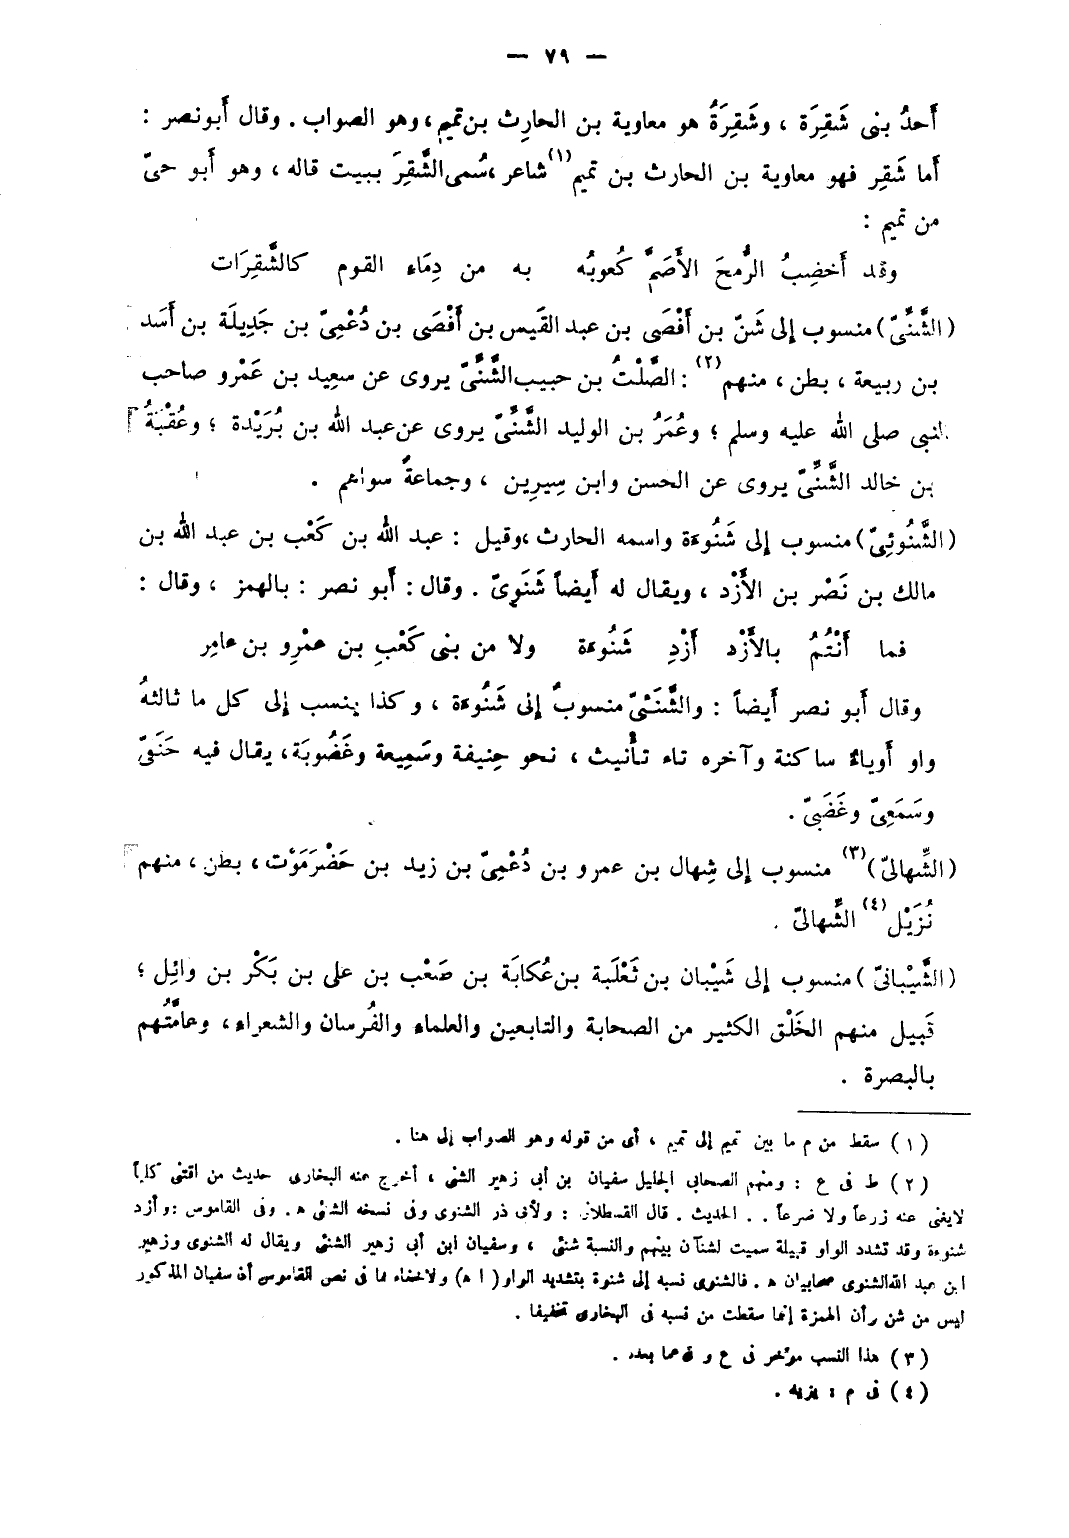 — ٧٩ —
أَحدُ بنى شَقِرَة ، وشَقِرَةُ هو معاوية بن الحارِث بن تميم ، وهو الصواب . وقال أَبو نصر :
أما شَقِر فهو معاوية بن الحارث بن تميم (١) شاعر ، سُمى الشَّقِرَ ببيت قاله ، وهو أبو حىّ
من تميم :
وقد أَخضِبُ الرُّمحَ الأَصَمَّ كُعوبُه به من دِمَاء القوم كالشَّقِرَات
( الشَّنِّىّ ) منسوب إلى شَنّ بن أَفْصَى بن عبد القَيس بن أَفْصَى بن دُعْمِىّ بن جَدِيلَة بن أَسَد
بن ربيعة ، بطن ، منهم (٢) : الصَّلْتُ بن حبيب الشَّنِّىّ يروى عن سعِيد بن عَمْرو صاحب
النبى صلى الله عليه وسلم ؛ وعُمَرُ بن الوليد الشَّنِّىّ يروى عن عبد الله بن بُرَيْدة ؛ وعُقْبَةُ
بن خالد الشَّنِّىّ يروى عن الحسن وابن سِيرِين ، وجماعةٌ سواهم .
( الشَّنُوئِىّ ) منسوب إلى شَنُوءَة واسمه الحارث ، وقيل : عبد الله بن كَعْب بن عبد الله بن
مالك بن نَصْر بن الأَزْد ، ويقال له أَيضاً شَنَوِىّ . وقال : أَبو نصر : بالهمز ، وقال :
فما أَنْتُمُ بالأَزْد أَزْدِ شَنُوءَة ولا من بنى كَعْبِ بن عمْرِو بن عامِر
وقال أَبو نصر أَيضاً : والشَّنَئىّ منسوبٌ إلى شَنُوءَة ، وكذا ينسب إلى كل ما ثالثهُ
واو أَوياءٌ ساكنة وآخره تاء تأْنيث ، نحو حنِيفة وسَمِيعة وغَضُوبَة ، يقال فيه حَنَفىّ
وسَمَعِىّ وغَضَبىّ .
( الشِّهالىّ ) (٣) منسوب إلى شِهال بن عمرو بن دُعْمِىّ بن زيد بن حَضْرَمَوْت ، بطن ، منهم
نُزَيْل (٤) الشِّهالىّ .
( الشَّيْبانىّ ) منسوب إلى شَيْبان بن ثَعْلَبة بن عُكابَة بن صَعْب بن على بن بَكْر بن وائِل ؛
قَبيل منهم الخَلْق الكثير من الصحابة والتابعين والعلماء والفُرسان والشعراء ، وعامَّتُهم
بالبصرة .
( ١ ) سقط من م ما بين تميم إلى تميم ، أى من قوله وهو الصواب إلى هنا .
( ٢ ) ط فى ع : ومنهم الصحابى الجليل سفيان بن أبى زهير الشنى ، أخرج عنه البخارى حديث من اقتنى كلباً
لايغنى عنه زرعاً ولا ضرعاً . . الحديث . قال القسطلانى : ولأبى ذر الشنوى وفى نسخه الشنئى ه . وفى القاموس : وأزد
شنوءة وقد تشدد الواو قبيلة سميت لشنآن بينهم والنسبة شنئى ، وسفيان ابن أبى زهير الشنئى ويقال له الشنوى وزهير
ابن عبد الله الشنوى صحابيان ه . فالشنوى نسبه إلى شنوة بتشديد الواو ( ا ه ) ولاخفاء مما فى نص القاموس أن سفيان المذكور
ليس من شن وأن الهمزة إنما سقطت من نسبه فى البخارى تخفيفا .
( ٣ ) هذا النسب مؤخر فى ع و ق عما بعده .
( ٤ ) فى م : يزيه .